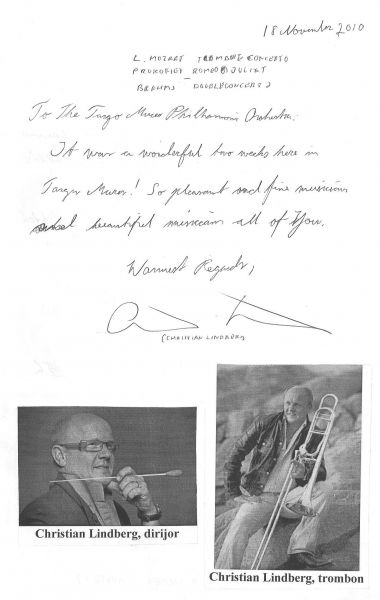 18 November 2010
L. MOZART TROMBONE CONCERTO
PROKOFIEV ROMEO & JULIET
BRAHMS DOUBLECONCERTO
To The Targo Mures Philharmonic Orchestra.
It was a wonderful two weeks here in
Targu Mures! So pleasant and fine musicians
and beautiful musicians all of You.
Warmest Regards,
(CHRISTIAN LINDBERG)
Christian Lindberg, dirijor
Christian Lindberg, trombon